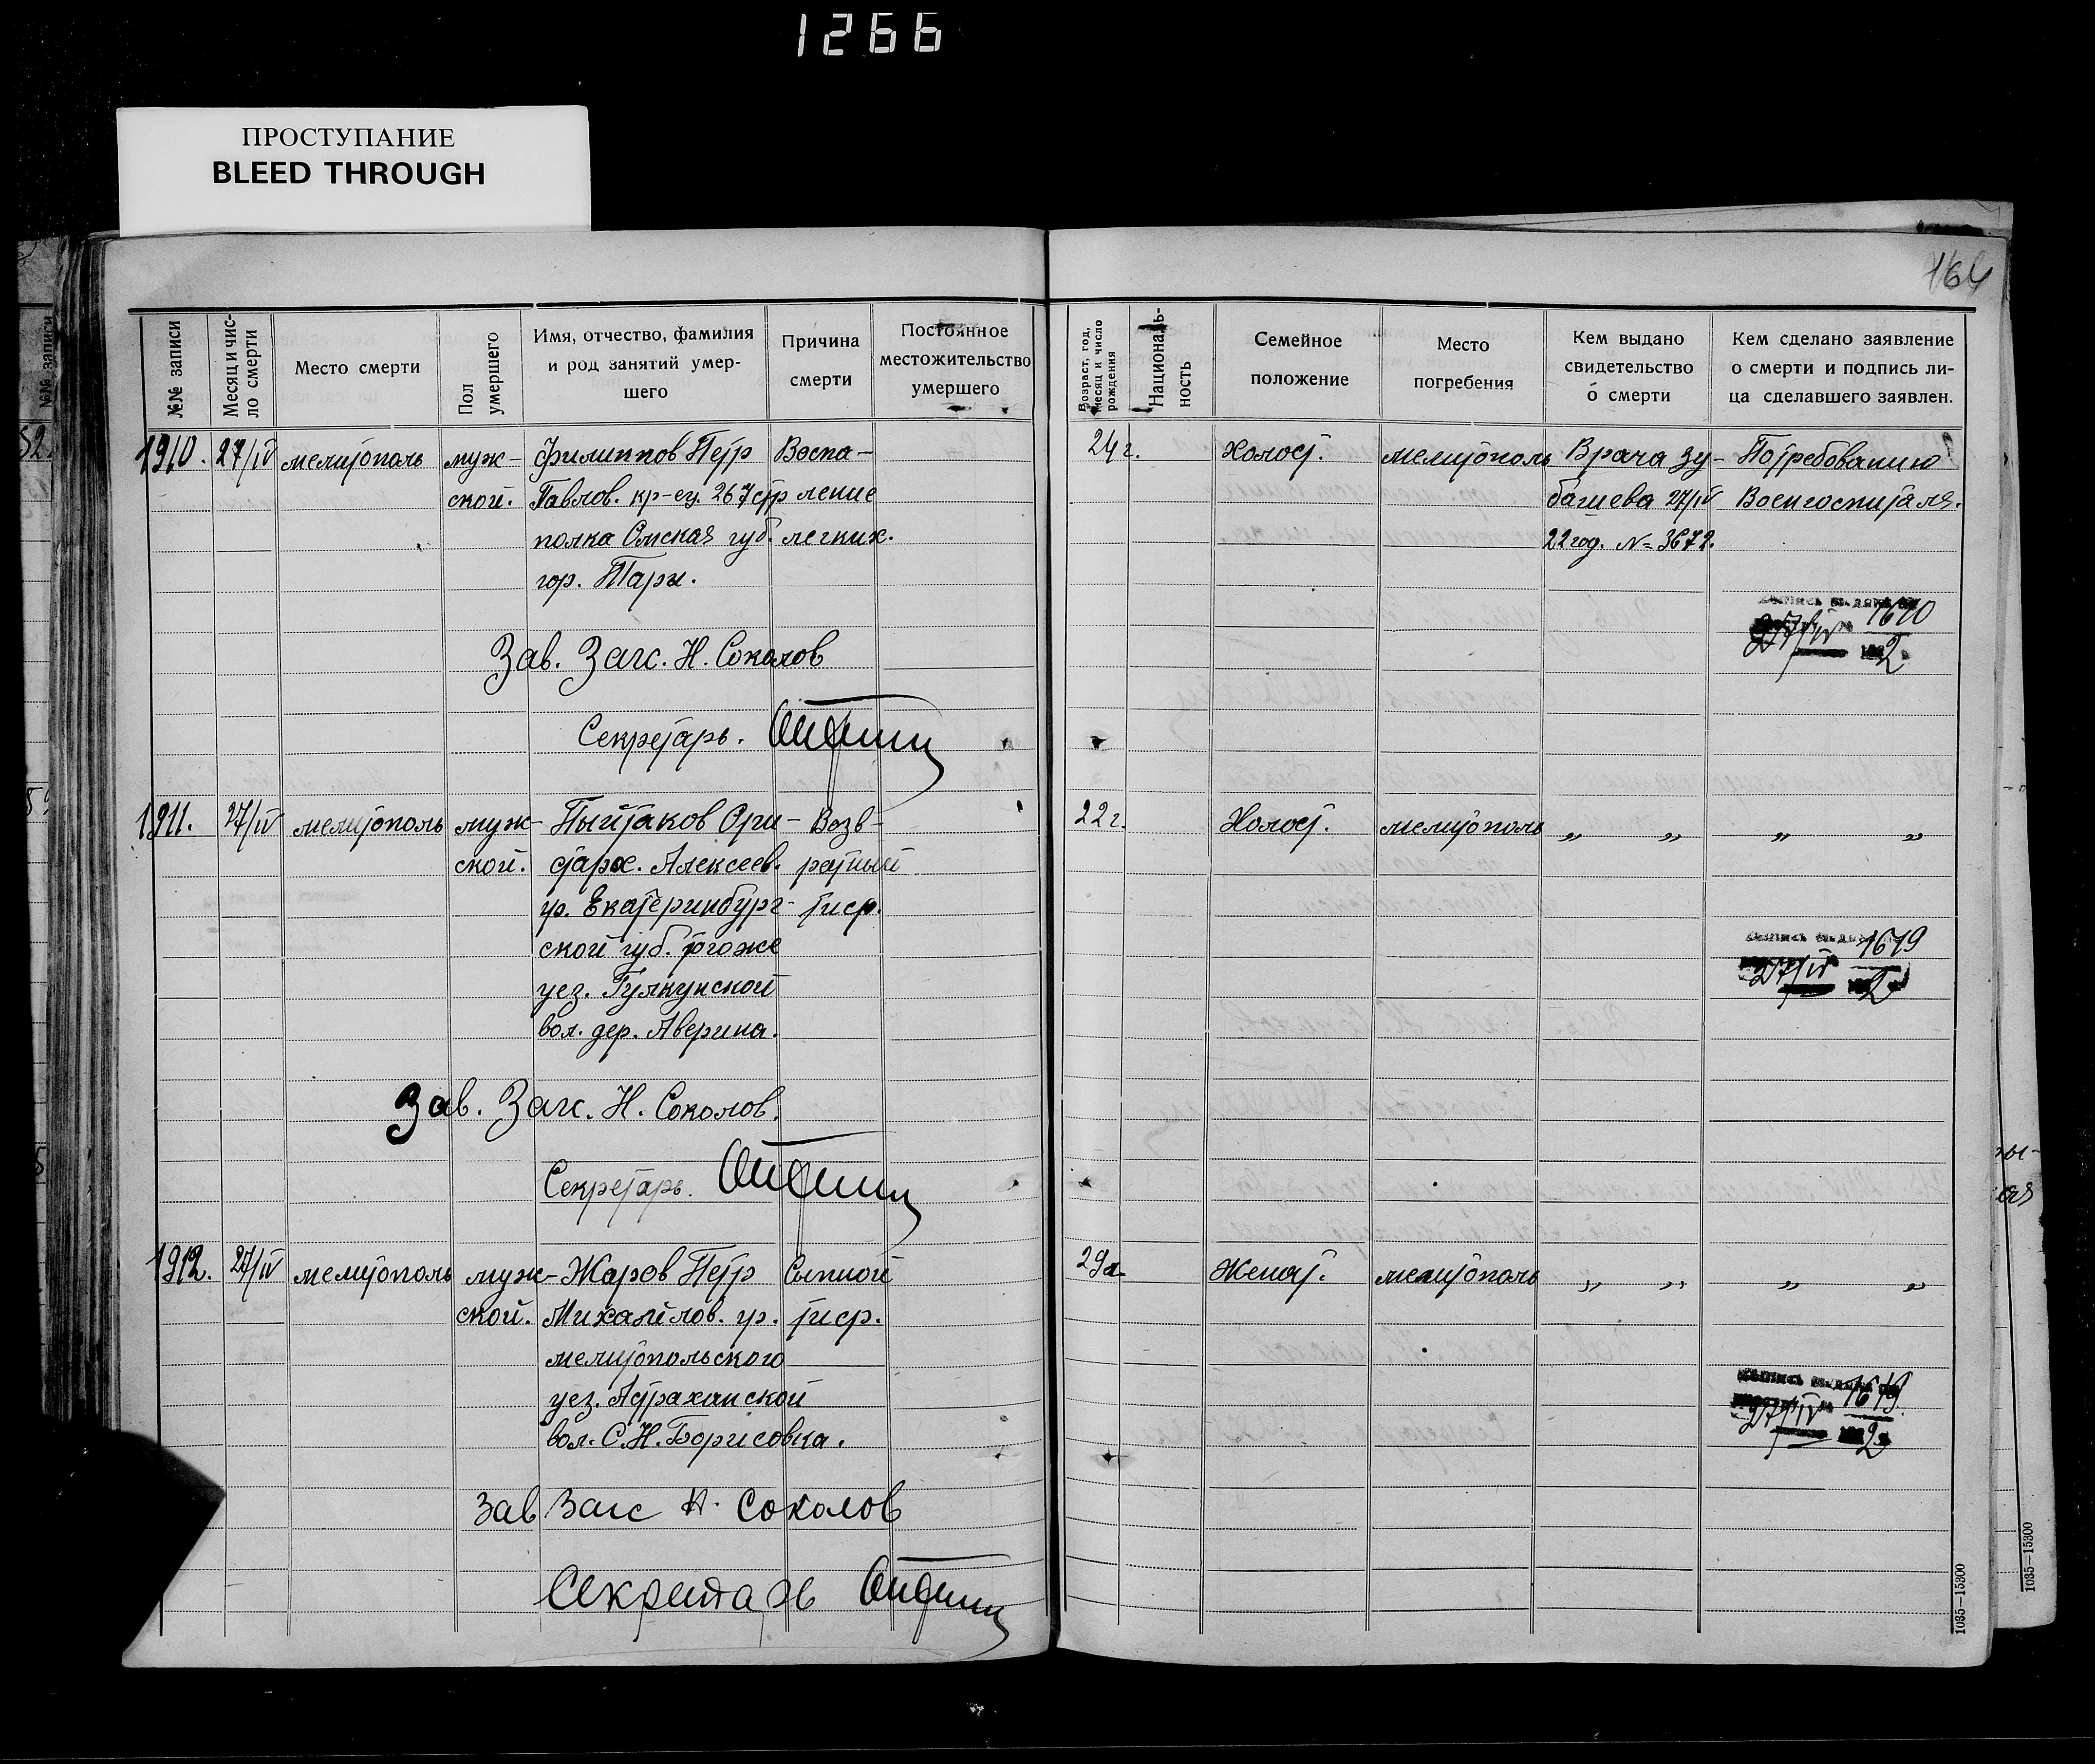 1266
ПРОСТУПАНИЕ
BLEED THROUGH
164
№№ записи
Месяц и чис-
ло смерти
Место смерти
Пол
умершего
Имя, отчество, фамилия
и род занятий умер-
шего
Причина
смерти
Постоянное
местожительство
умершего
Возраст, год,
месяц и число
рождения
Националь-
ность
Семейное
положение
Место
погребения
Кем выдано
свидетельство
о смерти
Кем сделано заявление
о смерти и подпись ли-
ца сделавшего заявлен.
1910. 27/IV мелитополь муж- Филиппов Петр Воспа- 24 г. Холост. мелитополь Врача Зу- По требованию
ской. Павлов. кр-ец. 267 стр ление багиева 27/IV Воен госпиталя.
полка Омская губ. легких. 22 год. № 3672.
гор. Тары.
1610
27/IV 2
Зав. Загс. Н. Соколов
Секретарь.
1911. 27/IV мелитополь муж- Пыйтаков Ари- Возв- 22 г. Холост. мелитополь „ „ „ „
ской. старх. Алексеев. ратный
гр. Екатеринбург- тиф.
ской губ. тогоже
уез. 
вол. дер. Аверина.
1619
27/IV 2
Зав. Загс. Н. Соколов.
Секретарь.
1912. 27/IV мелитополь муж- Жаров Петр Сыпной 29 л. Женат. мелитополь „ „ „ „
ской. Михайлов. гр. тиф.
мелитопольского
уез. Астраханской
вол. С. Н. Борисовка.
1619
27/IV 2
Зав Загс Н. Соколов
Секретарь
1035—15300
1035—15300